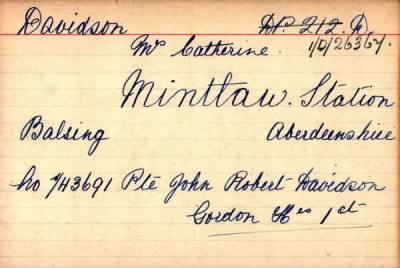 Davidson D.P. 212. D.
Mrs Catherine. 1/D/26367.
Mintlaw. Station
Balsing Aberdeenshire
No 7/43691 Pte John Robert Davidson
Gordon Hrs 1st